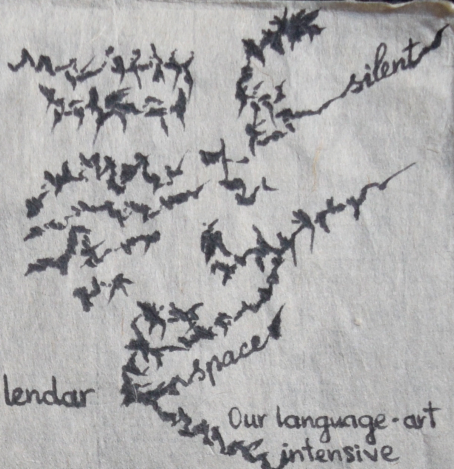 silent
space
lendar
Our language-art
intensive